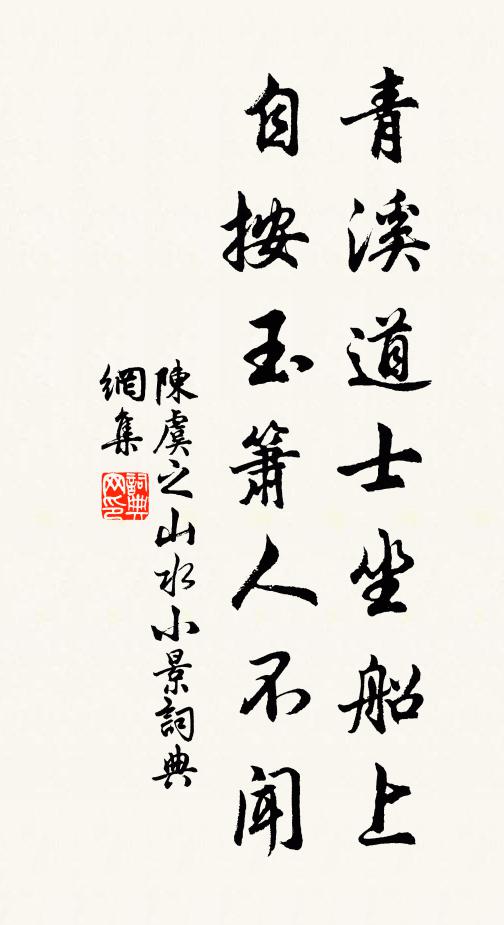 青溪道士坐船上
自按玉簫人不闻
陳虞之山水小景詞典
網集
詞典
网印